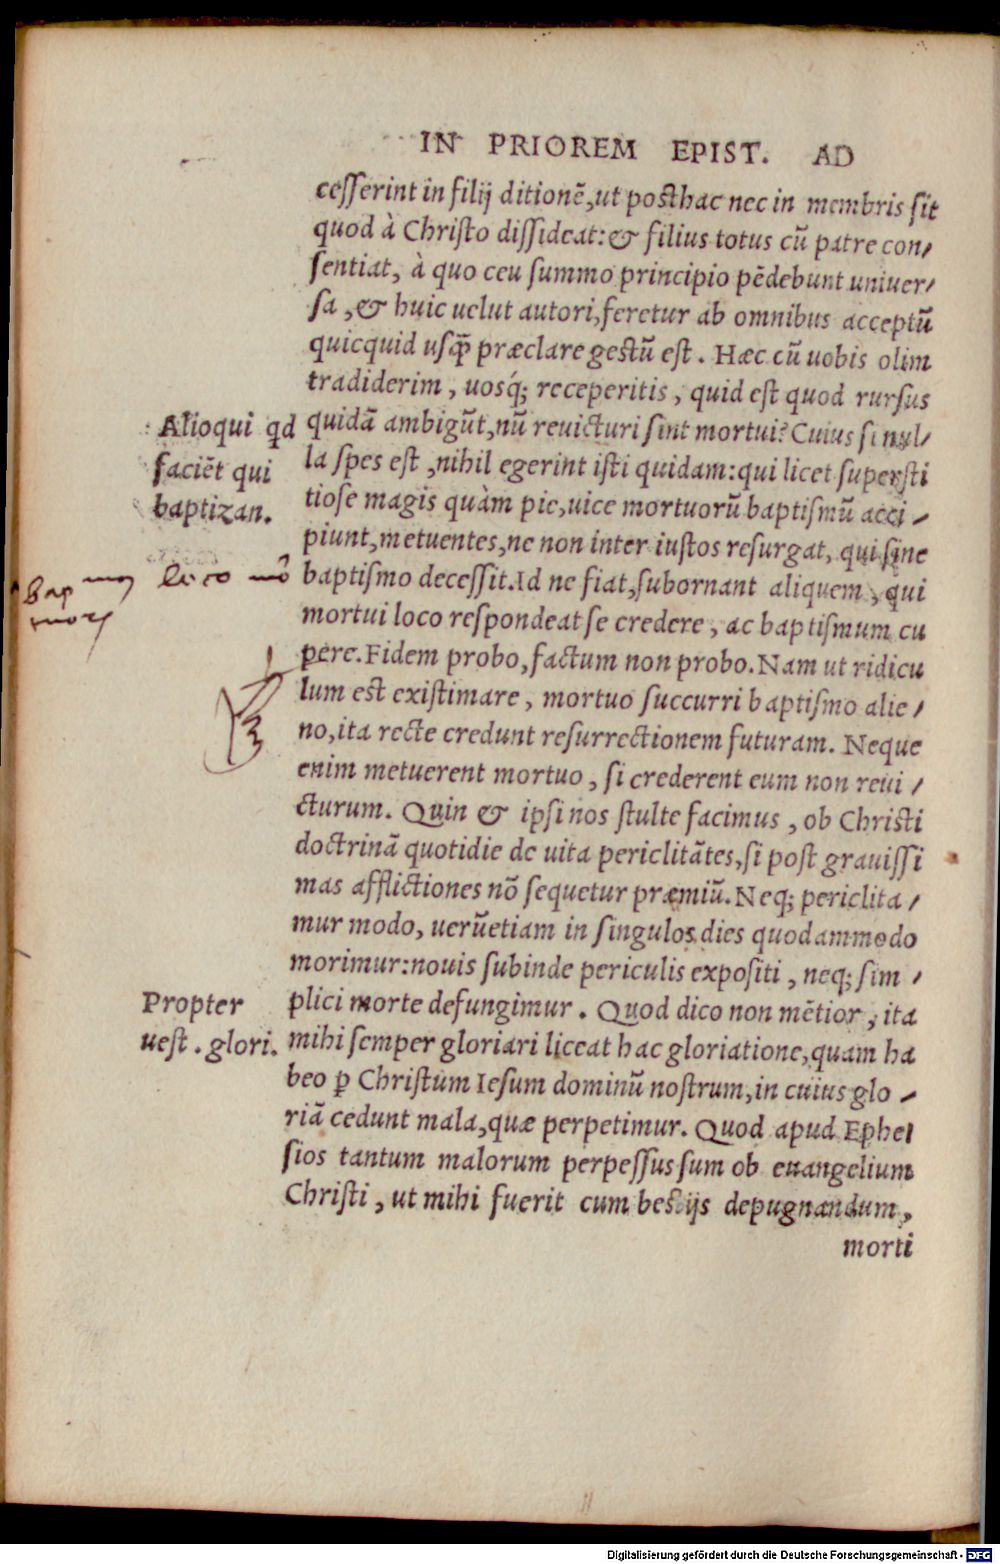 IN PRIOREM EPIST. AD
cesserint in filij ditionē, ut posthac nec in membris sit
quod à Christo dissideat: & filius totus cū patre con/
sentiat, à quo ceu summo principio pēdebunt univer/
sa, & huic uelut autori, feretur ab omnibus acceptū
quicquid usq̃ præclare gestū est. Hæc cū uobis olim
tradiderim, uosq́; receperitis, quid est quod rursus
Alioqui qd
faciēt qui
baptizan.
quidā ambigūt, nū reuicturi sint mortui? Cuius si nul/
la spes est, nihil egerint isti quidam: qui licet supersti
tiose magis quàm pie, uice mortuorū baptismū acci/
piunt, metuentes, ne non inter iustos resurgat, qui sine
baptismo decessit. Id ne fiat, subornant aliquem, qui
mortui loco respondeat se credere, ac baptismum cu
pere. Fidem probo, factum non probo. Nam ut ridicu
lum est existimare, mortuo succurri baptismo alie/
no, ita recte credunt resurrectionem futuram. Neque
enim metuerent mortuo, si crederent eum non reui/
cturum. Quin & ipsi nos stulte facimus, ob Christi
doctrinā quotidie de uita periclitātes, si post grauissi
mas afflictiones nō sequetur præmiū. Neq; periclita/
mur modo, uerūetiam in singulos dies quodammodo
morimur: nouis subinde periculis expositi, neq; sim/
Propter
uest. glori.
plici morte defungimur. Quod dico non mētior, ita
mihi semper gloriari liceat hac gloriatione, quam ha
beo ꝑ Christum Iesum dominū nostrum, in cuius glo/
riā cedunt mala, quæ perpetimur. Quod apud Ephe/
sios tantum malorum perpessus sum ob euangelium
Christi, ut mihi fuerit cum bestijs depugnandum,
morti
Digitalisierung gefördert durch die Deutsche Forschungsgemeinschaft - DFG